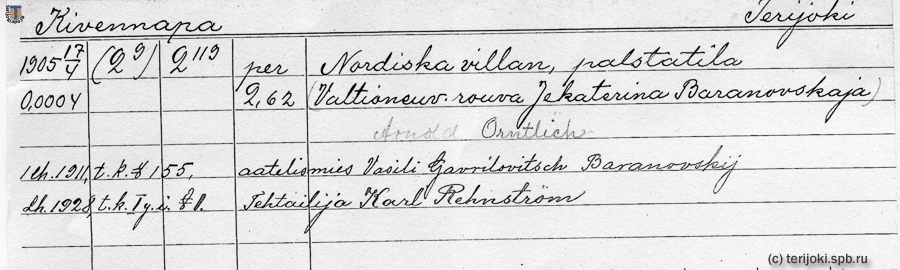 Kivennapa Terijoki
1905 17/4 (2⁹) 2¹¹⁹ per Nordiska villan, palstatila
0,0004 2,62 (Valtioneuv. rouva Jekaterina Baranovskaja)
Arnold Orntlich
1911, t.k. § 155, aatelismies Vasili Gavrilovitsch Baranovskij
1928, t.k. Tehtailija Karl Rehnström
(c) terijoki.spb.ru